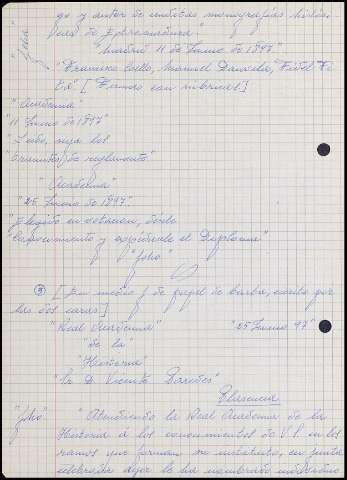 go y autor de eruditas monografías histó-
ricas de Extremadura.
"Madrid 11 de Junio de 1897"
"Francisco Coello, Manuel Danvila, "Fidel Fi-
ta" [Firmas con rúbricas]
"Academia"
"11 Junio de 1897"
los
"trámites de reglamento"
"Academia"
"25 Junio de 1897"
"Elegido en votacion, désele
"conocimiento y expídasele el Diploma"
"folio"
[En medio f. de papel de barba, escrito por
las dos caras]
"Real Academia" "25 Junio 97"
"de la"
"Historia"
"Sr. D. Vicente Paredes"
Plasencia
"folio" "Atendiendo la Real Academia de la
Historia á los conocimientos de V.S. en los
ramos que forman su instituto, en junta
celebrada ayer le ha nombrado individuo